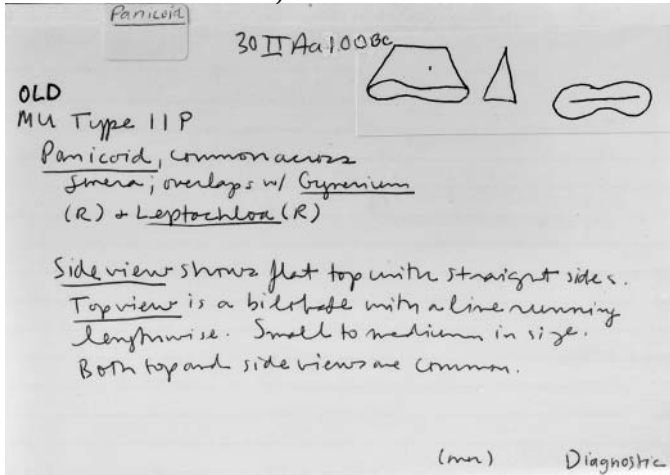 Panicoid
30 II Aa 1.00 BC
OLD
MU Type 11 P
Panicoid, common across
genera; overlaps w/ Gynerium
(R) + Leptochloa (R)
Side view shows flat top with straight sides.
Top view is a bilobate with a line running
lengthwise. Small to medium in size.
Both top and side views are common.
Diagnostic